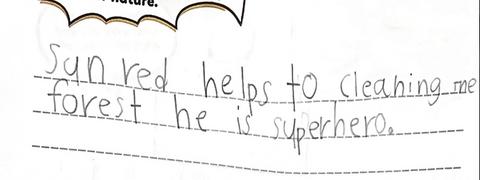 nature.
Sun red helps to cleaning me
forest he is superhero.